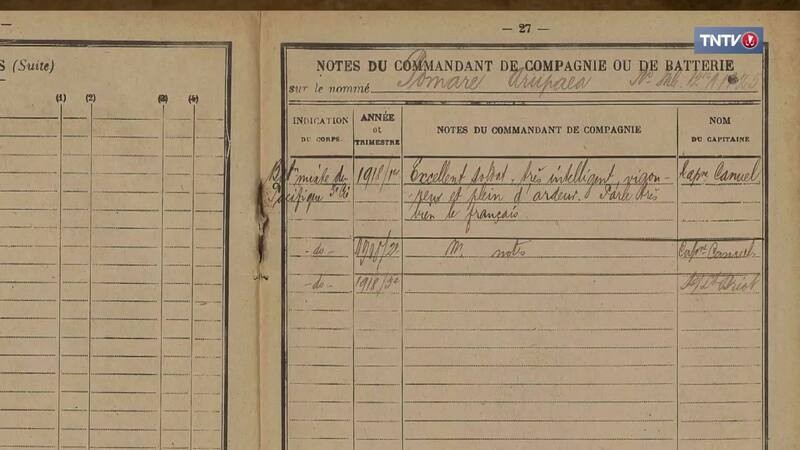 — 27 —
TNTV
S (Suite)
NOTES DU COMMANDANT DE COMPAGNIE OU DE BATTERIE
sur le nommé Pomare Arupaea Nº Mle
(1) (2) (3) (4)
INDICATION DU CORPS.
ANNÉE et TRIMESTRE
NOTES DU COMMANDANT DE COMPAGNIE
NOM DU CAPITAINE
Bon mixte du
Pacifique
1918/1er
Excellent soldat, très intelligent, vigou-
reux et plein d'ardeur. Parle très
bien le français
Capne Canuel
-do- 1918/2e M. notes Capne Canuel
-do- 1918/3e